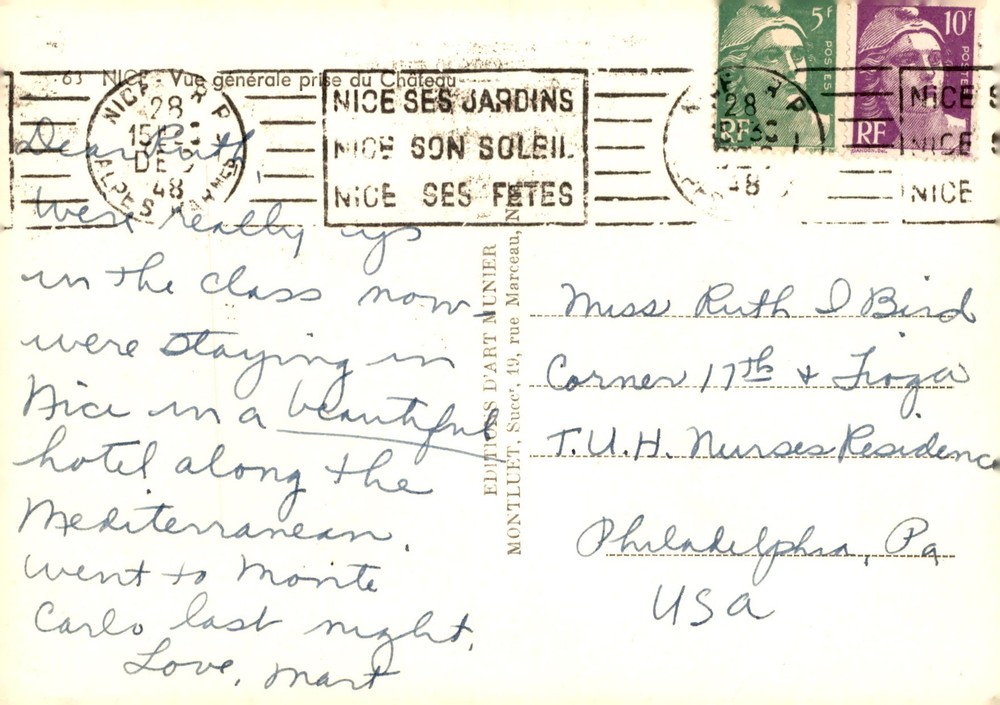 63 NICE - Vue générale prise du Château
NICE R P
28
15H30
DEC
48
ALPES MARMES
NICE SES JARDINS
NICE SON SOLEIL
NICE SES FETES
5F
POSTES
RF
10F
POSTES
RF
28
48
NICE S
NICE S
NICE
Dear Ruth,
Were really up
in the class now -
were staying in
Nice in a beautiful
hotel along the
Mediterranean.
Went to Monte
Carlo last night.
Love, Mart
EDITIONS D'ART MUNIER
MONTLUET, Succr 19, rue Marceau, N
Miss Ruth I Bird
Corner 17th & Tioga
T.U.H. Nurses Residence
Philadelphia, Pa
USA